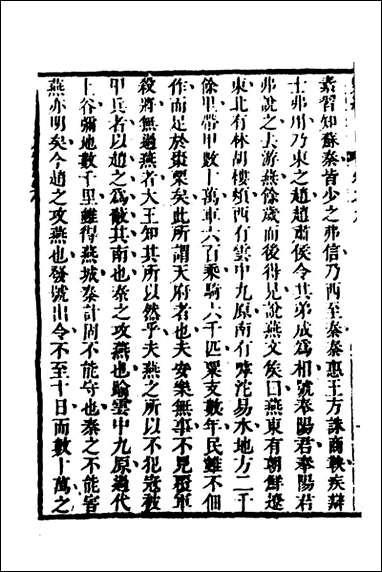 素習知蘇秦皆少之弗信乃西至秦秦惠王方誅商鞅疾辯
士弗用乃東之趙趙肅侯令其弟成爲相號奉陽君奉陽君
弗說之去游燕歲餘而後得見說燕文矦曰燕東有朝鮮遼
東北有林胡樓煩西有雲中九原南有嘑沱易水地方二千
餘里帶甲數十萬車六百乘騎六千匹粟支數年民雖不佃
作而足於棗栗矣此所謂天府者也夫安樂無事不見覆軍
殺將無過燕者大王知其所以然乎夫燕之所以不犯寇被
甲兵者以趙之爲蔽其南也秦之攻燕也踰雲中九原過代
上谷彌地數千里雖得燕城秦計固不能守也秦之不能害
燕亦明矣今趙之攻燕也發號出令不至十日而數十萬之